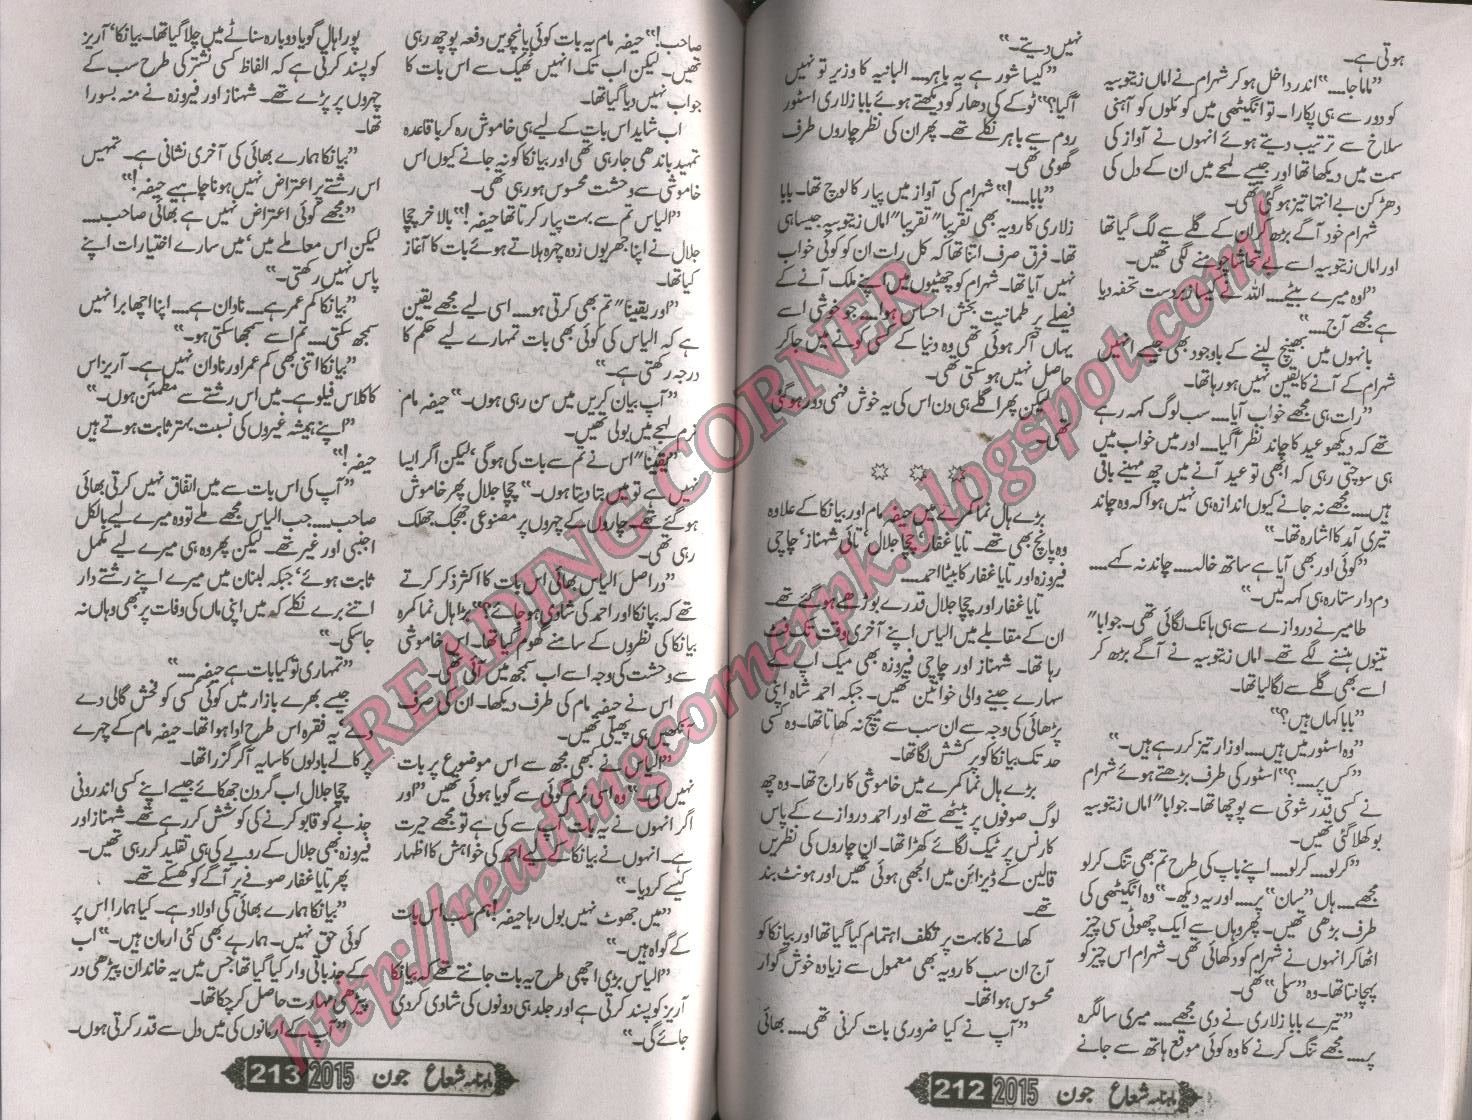 ہوتی ہے۔
”ماما جا.....“ اندر داخل ہو کر شہرام نے اماں زیتوبیہ
کو دور سے ہی پکارا۔ تو انگیٹھی میں کوئلوں کو آہنی
سلاخ سے ترتیب دیتے ہوئے انہوں نے آواز کی
سمت میں دیکھا تھا اور جیسے لمحے میں ان کے دل کی
دھڑکن بے انتہا تیز ہو گئی تھی۔
شہرام خود آگے بڑھ کر ان کے گلے سے لگ گیا تھا
اور اماں زیتوبیہ اسے بے تحاشا چومنے لگی تھیں۔
”اوہ میرے بیٹے..... اللہ نے کیسا زبردست تحفہ دیا
ہے مجھے آج.....“
بانہوں میں بھینچ لینے کے باوجود بھی جیسے انہیں
شہرام کے آنے کا یقین نہیں ہو رہا تھا۔
”رات ہی مجھے خواب آیا..... سب لوگ کہہ رہے
تھے کہ دیکھو عید کا چاند نظر آ گیا..... اور میں خواب میں
ہی سوچتی رہی کہ ابھی تو عید آنے میں چھ مہینے باقی
ہیں..... مجھے نہ جانے کیوں اندازہ ہی نہیں ہوا کہ وہ چاند
تیری آمد کا اشارہ تھا۔“
”کوئی اور بھی آیا ہے ساتھ خالہ..... چاند نہ کہے.....
دم دار ستارہ ہی کہہ لیں۔“
طامیر نے دروازے سے ہی ہانک لگائی تھی۔ جوابا“
تینوں ہنسنے لگے تھے۔ اماں زیتوبیہ نے آگے بڑھ کر
اسے بھی گلے سے لگا لیا تھا۔
”بابا کہاں ہیں؟“
”وہ اسٹور میں ہیں..... اوزار تیز کر رہے ہیں۔“
”کس پر.....؟“ اسٹور کی طرف بڑھتے ہوئے شہرام
نے کسی قدر شوخی سے پوچھا تھا۔ جوابا“ اماں زیتوبیہ
بوکھلا گئی تھیں۔
”کر لو..... کر لو..... اپنے باپ کی طرح تم بھی تنگ کر لو
مجھے..... ہاں ”سان“ پر..... اور یہ دیکھ۔“ وہ انگیٹھی کی
طرف بڑھی تھیں۔ پھر وہاں سے ایک چھوٹی سی چیز
اٹھا کر انہوں نے شہرام کو دکھائی تھی۔ شہرام اس چیز کو
پہچانتا تھا۔ وہ ”سلی“ تھی۔
”تیرے بابا زلاری نے دی مجھے..... میری سالگرہ
پر..... مجھے تنگ کرنے کا وہ کوئی موقع ہاتھ سے جانے
نہیں دیتے۔“
”کیسا شور ہے یہ باہر..... البانیہ کا وزیر تو نہیں
آ گیا؟“ ٹوکے کی دھار کو دیکھتے ہوئے بابا زلاری اسٹور
روم سے باہر نکلے تھے۔ پھر ان کی نظر چاروں طرف
گھومی تھی۔
”بابا.....!“ شہرام کی آواز میں پیار کا لوچ تھا۔ بابا
زلاری کا رویہ بھی تقریبا“ تقریبا“ اماں زیتوبیہ جیسا ہی
تھا۔ فرق صرف اتنا تھا کہ کل رات ان کو کوئی خواب
نہیں آیا تھا۔ شہرام کو چھٹیوں میں اپنے ملک آنے کے
فیصلے پر طمانیت بخش احساس ہوا..... جو خوشی اسے
یہاں آ کر ہوئی تھی وہ دنیا کے کسی کونے میں جا کر
حاصل نہیں ہو سکتی تھی۔
لیکن پھر اگلے ہی دن اس کی یہ خوش فہمی دور ہو گئی
تھی۔
بڑے ہال نما کمرے میں حیفہ مام اور بیانکا کے علاوہ
وہ پانچ بھی تھے۔ تایا غفار‘ چچا جلال‘ تائی شہناز‘ چاچی
فیروزہ اور تایا غفار کا بیٹا احمد.....
تایا غفار اور چچا جلال قدرے بوڑھے ہو گئے تھے۔
ان کے مقابلے میں الیاس اپنے آخری وقت تک فٹ
رہا تھا۔ شہناز اور چاچی فیروزہ بھی میک اپ کے
سہارے جینے والی خواتین تھیں۔ جبکہ احمد شاہ اپنی
پڑھائی کی وجہ سے ان سب سے میچ نہ کھاتا تھا۔ وہ کسی
حد تک بیانکا کو پرکشش لگا تھا۔
بڑے ہال نما کمرے میں خاموشی کا راج تھا۔ وہ چھ
لوگ صوفوں پر بیٹھے تھے اور احمد دروازے کے پاس
کارنس پر ٹیک لگائے کھڑا تھا۔ ان چاروں کی نظریں
قالین کے ڈیزائن میں الجھی ہوئی تھیں اور ہونٹ بند
تھے۔
کھانے کا بہت پر تکلف اہتمام کیا گیا تھا اور بیانکا کو
آج ان سب کا رویہ بھی معمول سے زیادہ خوش گوار
محسوس ہوا تھا۔
”آپ نے کیا ضروری بات کرنی تھی..... بھائی
ماہنامہ شعاع جون 2015 212
صاحب!“ حیفہ مام یہ بات کوئی پانچویں دفعہ پوچھ رہی
تھیں۔ لیکن اب تک انہیں ٹھیک سے اس بات کا
جواب نہیں دیا گیا تھا۔
اب شاید اس بات کے لیے ہی خاموش رہ کر باقاعدہ
تمہید باندھی جا رہی تھی اور بیانکا کو نہ جانے کیوں اس
خاموشی سے وحشت محسوس ہو رہی تھی۔
”الیاس تم سے بہت پیار کرتا تھا حیفہ!“ بالآخر چچا
جلال نے اپنا جھریوں زدہ چہرہ ہلاتے ہوئے بات کا آغاز
کیا تھا۔
”اور یقینا“ تم بھی کرتی ہو..... اسی لیے مجھے یقین
ہے کہ الیاس کی کوئی بھی بات تمہارے لیے حکم کا
درجہ رکھتی ہے۔“
”آپ بیان کریں میں سن رہی ہوں۔“ حیفہ مام
نرم لہجے میں بولی تھیں۔
”یقینا“ اس نے تم سے بات کی ہو گی‘ لیکن اگر ایسا
نہیں ہے تو میں بتا دیتا ہوں۔“ چچا جلال پھر خاموش
ہو گئے تھے۔ چاروں کے چہروں پر مصنوعی جھجک جھلک
رہی تھی۔
”دراصل الیاس بھائی اس بات کا اکثر ذکر کرتے
تھے کہ بیانکا اور احمد کی شادی ہو جائے؟“ بڑا ہال نما کمرہ
بیانکا کی نظروں کے سامنے گھوم گیا تھا۔ اس خاموشی
سے وحشت کی وجہ اسے اب سمجھ میں آئی تھی۔
اس نے حیفہ مام کی طرف دیکھا۔ ان کی صرف
آنکھیں ہی پھیلی تھیں۔
”الیاس نے کبھی مجھ سے اس موضوع پر بات
نہیں کی۔“ وہ اسی نرم گوئی سے گویا ہوئی تھیں ”اور
اگر انہوں نے یہ بات آپ سے کی ہے تو مجھے حیرت
ہے۔ انہوں نے بیانکا کے لیے احمد کی خواہش کا اظہار
کیسے کر دیا۔“
”میں جھوٹ نہیں بول رہا حیفہ! ہم سب اس بات
کے گواہ ہیں۔“
”الیاس بڑی اچھی طرح یہ بات جانتے تھے کہ بیانکا
آریز کو پسند کرتی ہے اور جلد ہی دونوں کی شادی کر دی
جائے گی۔“
پورا ہال گویا دوبارہ سناٹے میں چلا گیا تھا۔ بیانکا‘ آریز
کو پسند کرتی ہے کہ الفاظ کسی نشتر کی طرح سب کے
چہروں پر پڑے تھے۔ شہناز اور فیروزہ نے منہ بسورا
تھا۔
”بیانکا ہمارے بھائی کی آخری نشانی ہے۔ تمہیں
اس رشتے پر اعتراض نہیں ہونا چاہیے حیفہ!“
”مجھے کوئی اعتراض نہیں ہے بھائی صاحب.....
لیکن اس معاملے میں‘ میں سارے اختیارات اپنے
پاس نہیں رکھتی۔“
”بیانکا کم عمر ہے..... نادان ہے..... اپنا اچھا برا نہیں
سمجھ سکتی..... تم اسے سمجھا سکتی ہو۔“
”بیانکا اتنی بھی کم عمر اور نادان نہیں ہے۔ آریز اس
کا کلاس فیلو ہے۔ میں اس رشتے سے مطمئن ہوں۔“
”اپنے ہمیشہ غیروں کی نسبت بہتر ثابت ہوتے ہیں
حیفہ!“
”آپ کی اس بات سے میں اتفاق نہیں کرتی بھائی
صاحب..... جب الیاس مجھے ملے تو وہ میرے لیے بالکل
اجنبی اور غیر تھے۔ لیکن پھر وہ ہی میرے لیے مکمل
ثابت ہوئے‘ جبکہ لبنان میں میرے اپنے رشتے دار
اتنے برے نکلے کہ میں اپنی ماں کی وفات پر بھی وہاں نہ
جا سکی۔“
”تمہاری تو کیا بات ہے حیفہ.....“
جیسے بھرے بازار میں کوئی کسی کو فحش گالی دے
دے‘ یہ فقرہ اس طرح ادا ہوا تھا۔ حیفہ مام کے چہرے
پر کالے بادلوں کا سایہ آ کر گزرا تھا۔
چچا جلال اب گردن جھکائے جیسے اپنے کسی اندرونی
جذبے کو قابو کرنے کی کوشش کر رہے تھے۔ شہناز اور
فیروزہ بھی جلال کے رویے کی ہی تقلید کر رہی تھیں۔
پھر تایا غفار صوفے پر آگے کو کھسکے تھے۔
”بیانکا ہمارے بھائی کی اولاد ہے۔ کیا ہمارا اس پر
کوئی حق نہیں۔ ہمارے بھی کئی ارمان ہیں۔“ اب
کے جذباتی وار کیا گیا تھا‘ جس میں یہ خاندان پیڑھی در
پیڑھی مہارت حاصل کر چکا تھا۔
”آپ کے ارمانوں کی میں دل سے قدر کرتی ہوں۔
ماہنامہ شعاع جون 2015 213
READING CORNER
http://readingcornerpk.blogspot.com/